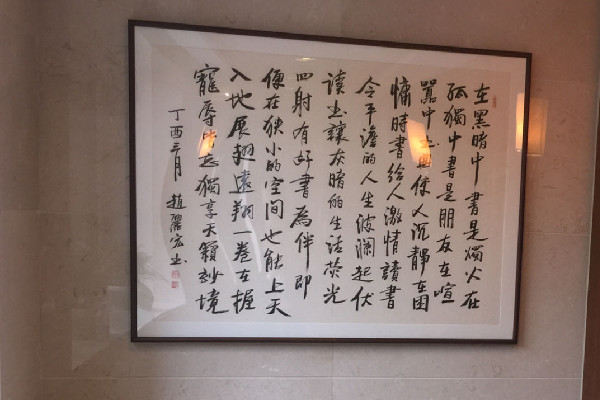 在黑暗中書是燭火在
孤獨中書是朋友在喧
囂中书使人沉靜在困
慵時書給人激情讀書
令平澹的人生波澜起伏
读书讓灰暗的生活荧光
四射有好書為伴即
便在狹小的空间也能上天
入地展翅遠翔一卷在握
寵辱皆忘獨享天籟妙境
丁酉三月 趙麗宏书